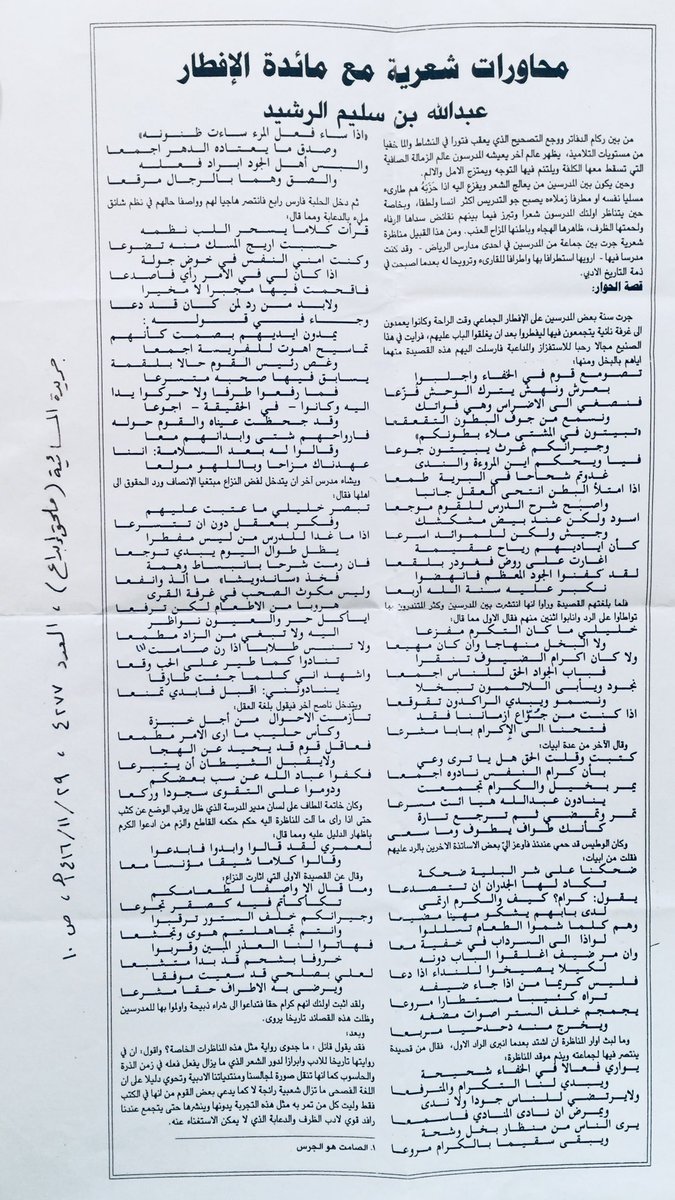 محاورات شعرية مع مائدة الإفطار
عبدالله بن سليم الرشيد
من بين ركام الدفاتر ووجع التصحيح الذي يعقب فتورا في النشاط والما خفيا
من مستويات التلاميذ، يظهر عالم آخر يعيشه المدرسون عالم الزمالة الصافية
التي تسقط معها الكلفة ويلتئم فيها التوجه ويمتزج الامل والالم.
وحين يكون بين المدرسين من يعالج الشعر ويفزع اليه اذا حَزَبَهُ هم طارىء
مسليا نفسه او مطرفا زملاءه يصبح جو التدريس اكثر انسا ولطفا، وبخاصة
حين يتناظر اولئك المدرسون شعرا وتبرز فيما بينهم نقائض سداها الرفاء
ولحمتها الظرف، ظاهرها الهجاء وباطنها المزاح العذب. ومن هذا القبيل مناظرة
شعرية جرت بين جماعة من المدرسين في احدى مدارس الرياض - وقد كنت
مدرسا فيها - ارويها استطرافا بها واطرافا للقارىء وترويحا له بعدما اصبحت في
ذمة التاريخ الادبي.
قصة الحوار:
جرت سنة بعض المدرسين على الإفطار الجماعي وقت الراحة وكانوا يعمدون
الى غرفة نائية يتجمعون فيها ليفطروا بعد ان يغلقوا الباب عليهم، فرايت في هذا
الصنيع مجالا رحبا للاستفزاز والمداعبة فارسلت اليهم هذه القصيدة متهما
اياهم بالبخل ومنها:
تصومع قوم في الخفاء واجلبوا
بعرش ونهش يترك الوحش فُزَّعا
فتصغي الى الاضراس وهي فواتك
وتسمع من جوف البطون التقعقعا
«تبيتون في المشتى ملاء بطونكم»
وجيرانكم غرث يبيتون جوعا
فيا ويحكم اين المروءة والندى
غدوتم شحاحا في البرية طمعا
اذا امتلأ البطن انتحى العقل جانبا
واصبح شرح الدرس للقوم موجعا
اسود ولكن عند بيض مشكشك
وجيش ولكن للموائد اسرعا
كأن اياديهم رياح عقيمة
اغارت على روض فغودر بلقعا
لقد كفنوا الجود المعظم فانهضوا
نكبر عليه سنة الله أربعا
فلما بلغتهم القصيدة وراوا انها انتشرت بين المدرسين وكثر المتندرون بها
تواطأوا على الرد وانابوا اثنين منهم فقال الاول مما قال:
خليلي ما كان التكرم مفزعا
ولا البخل منهاجا وان كان مهيعا
ولا كان اكرام الضيوف تنقرا
فباب الجواد الحق للناس اجمعا
نجود ويأبى اللائمون تبخلا
ونسمو ويبدي الراكدون تقوقعا
فتحنا الى الإكرام بابا مشرعا
وقال الآخر من عدة ابيات:
كتبت وقلت الحق هل يا ترى وعي
بأن كرام النفس نادوه اجمعا
يمر بخيل والكرام تجمعت
ينادون عبدالله هيا ائت مسرعا
تمر وتمضي ثم ترجع تارة
كأنك طواف يطوف وما سعى
وكان الوطيس قد حمي عندئذ فأوعز الي بعض الاساتذة الآخرين بالرد عليهم
فقلت من ابيات:
ضحكنا على شر البلية ضحكة
تكاد لها الجدران ان تتصدعا
يقول: كرام؟ كيف والكرم ارتمى
لدى بابهم يشكو مهينا مضيعا
وهم كلما شموا الطعام تسللوا
لواذا الى السرداب في خفية معا
وان مر ضيف اغلقوا الباب دونه
لكيلا يصيخوا للنداء اذا دعا
فليس كريما من اذا جاء ضيفه
تراه كئيبا مستطارا مروعا
يجمجم خلف الستر اصوات مضغه
ويخرج منه دحدحيا مربعا
وما لبث اوار المناظرة ان اشتد بعدما انبرى الراد الاول، فقال من قصيدة
ينتصر فيها لجماعته ويذم موقد المناظرة:
يواري فعالا في الخفاء شحيحة
ويبدي لنا التكرام والترفعا
ولايرتضي للناس جودا ولا ندى
ويمرض ان نادى المنادي فاسمعا
يرى الناس من منظار بخل وشحة
ويبقى سقيما بالكرام مروعا
«اذا ساء فعل المرء ساءت ظنونه»
وصدق ما يعتاده الدهر اجمعا
والبس أهل الجود ابراد فعله
والصق وهما بالرجال مرقعا
ثم دخل الحلبة فارس رابع فانتصر هاجيا لهم وواصفا حالهم في نظم شائق
مليء بالدعابة ومما قال:
قرأت كلاما يسحر اللب نظمه
حسبت اريج المسك منه تضوعا
وكنت امني النفس في خوض جولة
اذا كان لي في الأمر رأي فأصدعا
فاقحمت فيها مجبرا لا مخيرا
ولابد من رد لمن كان قد دعا
وجاء في قوله:
يمدون ايديهم بصمت كأنهم
تماسيح اهوت للفريسة اجمعا
وغص رئيس القوم حالا بلقمة
يسابق فيها صحبه متسرعا
فما رفعوا طرفا ولا حركوا يدا
اليه وكانوا - في الحقيقة - اجوعا
وقد جحظت عيناه والقوم حوله
فارواحهم شتى وابدانهم معا
وقالوا له بعد السلامة: اننا
عهدناك مزاحا وباللهو مولعا
ويشاء مدرس آخر ان يتدخل لفض النزاع مبتغيا الإنصاف ورد الحقوق الى
اهلها فقال:
تبصر خليلي ما عتبت عليهم
وفكر بعقل دون ان تتسرعا
اذا ما غدا للدرس من ليس مفطرا
يظل طوال اليوم يبدي توجعا
فان رمت شرحا بانبساط وهمة
فخذ «ساندويشا» ما ألذ وانفعا
وليس مكوث الصحب في غرفة القرى
هروبا من الاطعام لكن ترفعا
ايأكل حر والعيون نواظر
اليه ولا تبغي من الزاد مطمعا
ولا تنس طلابا اذا رن صامت (١)
تنادوا كما طير على الحب وقعا
واشهد اني كلما جئت طارقا
ينادونني: اقبل فابدي تمنعا
ويتدخل ناصح آخر فيقول بلغة العقل:
تأزمت الاحوال من أجل خبزة
وكأس حليب ما ارى الأمر مطمعا
فعاقل قوم قد يحيد عن الهجا
ولايقبل الشيطان أن يتبرعا
فكفوا عباد الله عن سب بعضكم
ودوموا على التقوى سجودا وركعا
وكان خاتمة المطاف على لسان مدير المدرسة الذي ظل يرقب الوضع عن كثب
حتى اذا رأى ما آلت المناظرة اليه حكم حكمه القاطع والزم من ادعوا الكرم
باظهار الدليل عليه ومما قال:
لعمري لقد قالوا وابدوا فابدعوا
وقالوا كلاما شيقا مؤنسا معا
وقال عن القصيدة الاولى التي اثارت النزاع:
وما قال الا واصفا لطعامكم
تكأكأتم فيه كصقر تجوعا
وجيرانكم خلف الستور ترقب
وانتم تجاهلتم هوى وتجشعا
فهاتوا لنا العذر المبين وقربوا
خروفا بشحم قد بدا متشبعا
لعلي بصلحي قد سعيت موفقا
ويرضى به الاطراف حقا مشرعا
ولقد اثبت اولئك انهم كرام حقا فتداعوا الى شراء ذبيحة واولموا بها للمدرسين
وظلت هذه القصائد تاريخا يروى.
وبعد:
فقد يقول قائل: ما جدوى رواية مثل هذه المناظرات الخاصة؟ واقول: ان في
روايتها تاريخا للادب وابرازا لدور الشعر الذي ما يزال يفعل فعله في زمن الذرة
والحاسوب كما انها تنقل صورة لمجالسنا ومنتدياتنا الادبية وتحوي دليلا على ان
اللغة الفصحى ما تزال شعبية رائجة لا كما يدعي بعض القوم من انها في الكتب
فقط وليت كل من تمر به مثل هذه التجربة يدونها وينشرها حتى يتجمع عندنا
رافد قوي لادب الظرف والدعابة الذي لا يمكن الاستغناء عنه.
١. الصامت هو الجرس
جريدة المسائية (ملحق إبداع)، العدد ٤٢٧٧، ١٤١٦/١١/٢٩هـ، ص ١٠